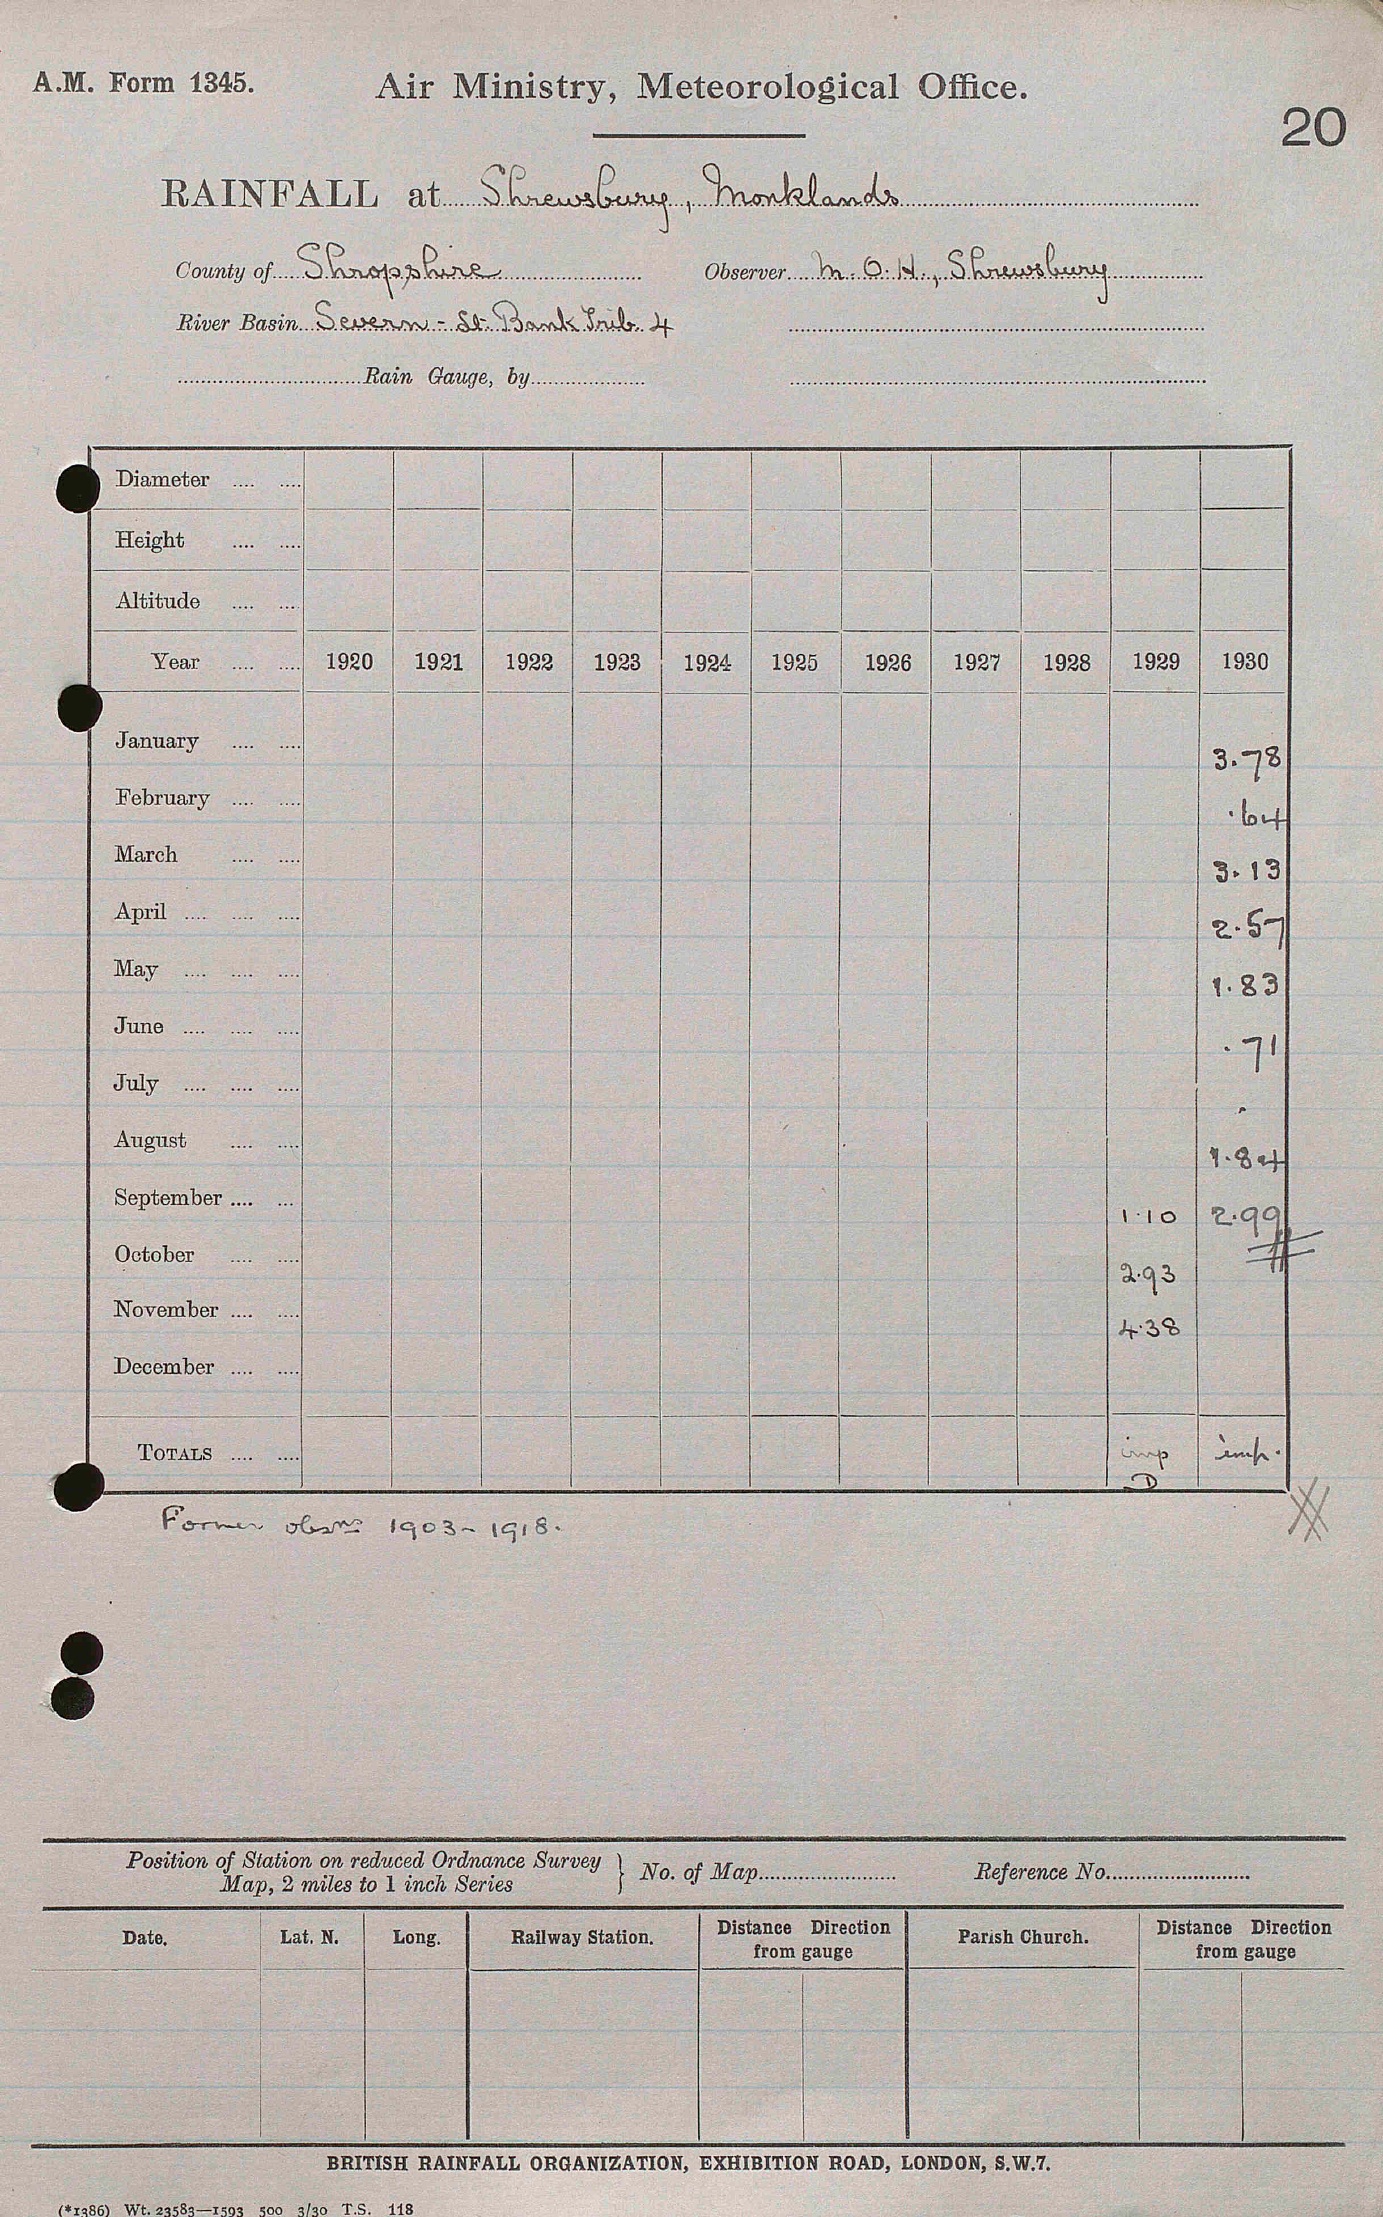 A.M. Form 1345. Air Ministry, Meteorological Office.
20
RAINFALL at Shrewsbury, Monklands
County of Shropshire Observer M.O.H., Shrewsbury
River Basin Severn - Bank Trib. 4
Rain Gauge, by
Diameter
Height
Altitude
Year 1920 1921 1922 1923 1924 1925 1926 1927 1928 1929 1930
January 3.78
February .64
March 3.13
April 2.57
May 1.83
June .71
July .
August 1.84
September 1.10 2.99
October 2.93
November 4.38
December
TOTALS imp imp.
D
Former obsns 1903-1918.
Position of Station on reduced Ordnance Survey
Map, 2 miles to 1 inch Series } No. of Map Reference No.
Date. Lat. N. Long. Railway Station. Distance Direction from gauge Parish Church. Distance Direction from gauge
BRITISH RAINFALL ORGANIZATION, EXHIBITION ROAD, LONDON, S.W.7.
(*1386) Wt. 23583—1593 500 3/30 T.S. 118